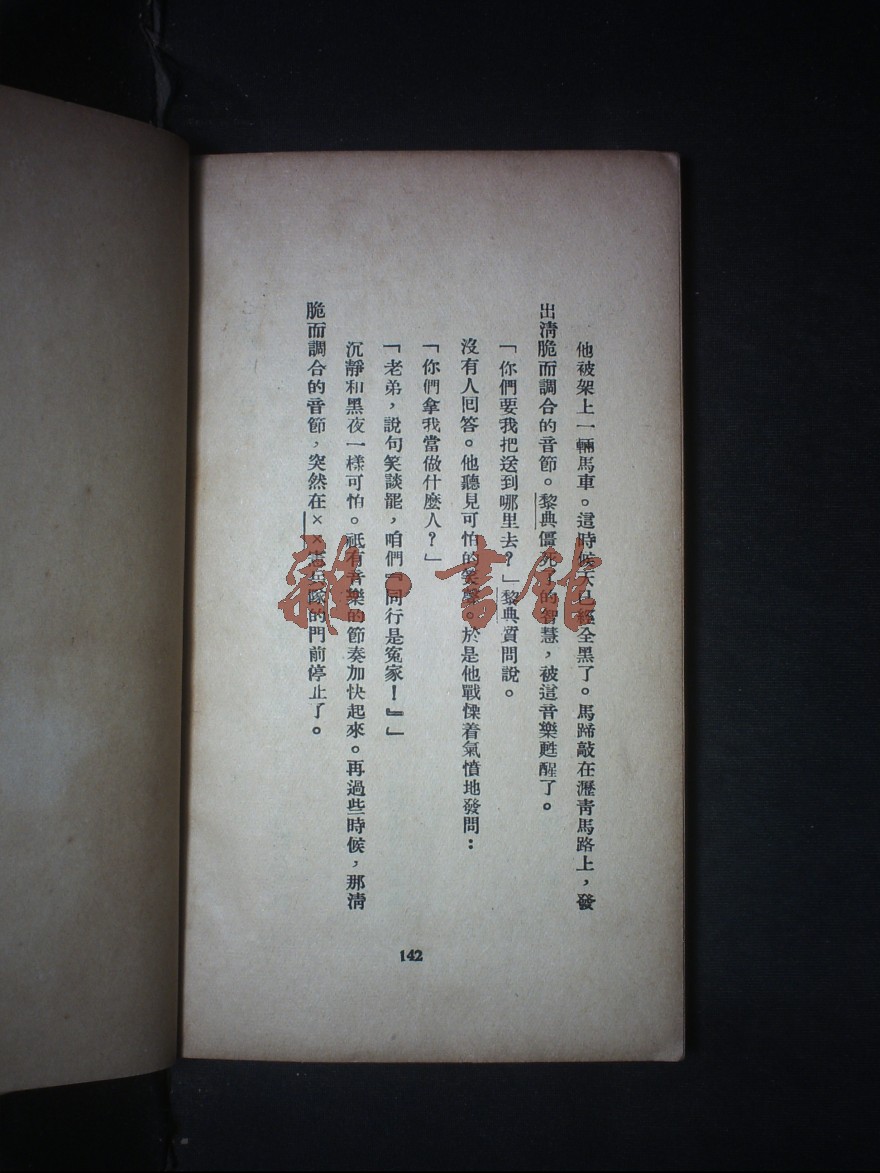 他被架上一輛馬車。這時候天已經全黑了。馬蹄敲在瀝青馬路上，發
出淸脆而調合的音節。黎典僵死了的智慧，被這音樂甦醒了。
「你們要我把送到哪里去？」黎典質問說。
沒有人回答。他聽見可怕的笑聲。於是他戰慄着氣憤地發問：
「你們拿我當做什麼人？」
「老弟，說句笑談罷，咱們『同行是寃家！』」
沉靜和黑夜一樣可怕。祇有音樂的節奏加快起來。再過些時候，那淸
脆而調合的音節，突然在××憲兵隊的門前停止了。
142
雜·書館